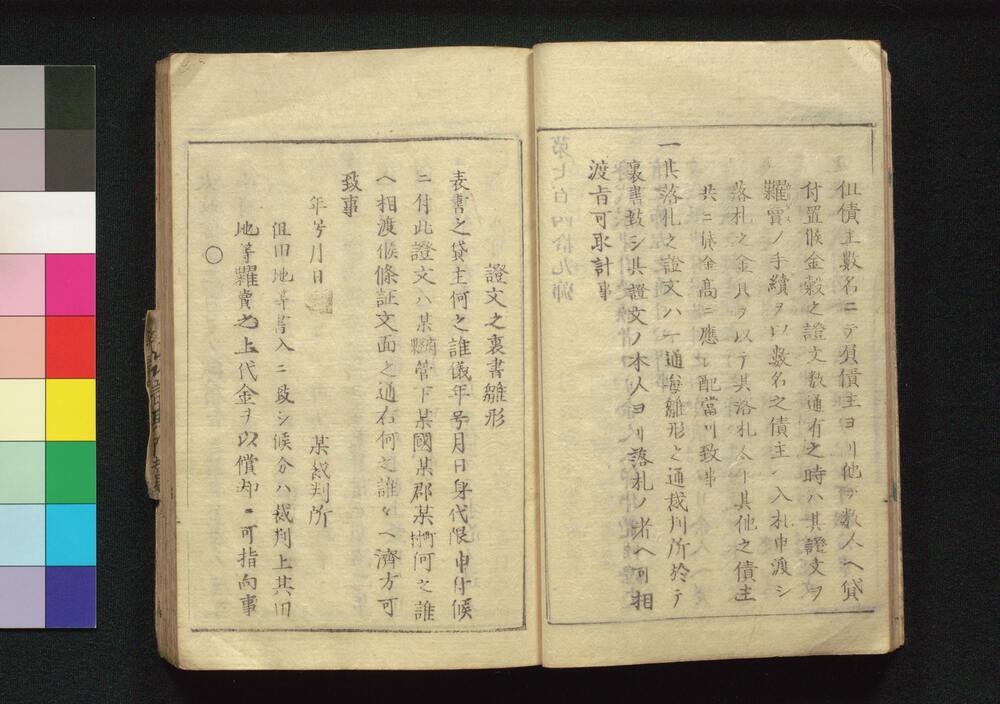 但債主數名ニテ負債主ヨリ他ノ數人ヘ貸
付置候金穀之證文数通有之時ハ其證文ヲ
糶賣ノ手續ヲ以數名之債主ヘ入札申渡シ
落札之金員ヲ以テ其落札人并其他之債主
共ニ貸金高ニ應シ配當可致事
一其落札之證文ハ一通毎雛形之通裁判所於テ
裏書致シ其證文ノ本人ヨリ落札ノ者ヘ可相
渡旨可取計事
證文之裏書雛形
表書之貸主何之誰儀年号月日身代限申付候
ニ付此證文ハ某縣管下某國某郡某村何之誰
ヘ相渡候條証文面之通右何之誰ヘ濟方可
致事
年号月日
某裁判所
但田地等書入ニ致シ候分ハ裁判上其田
地等糶賣之上代金ヲ以償却可指向事
〇